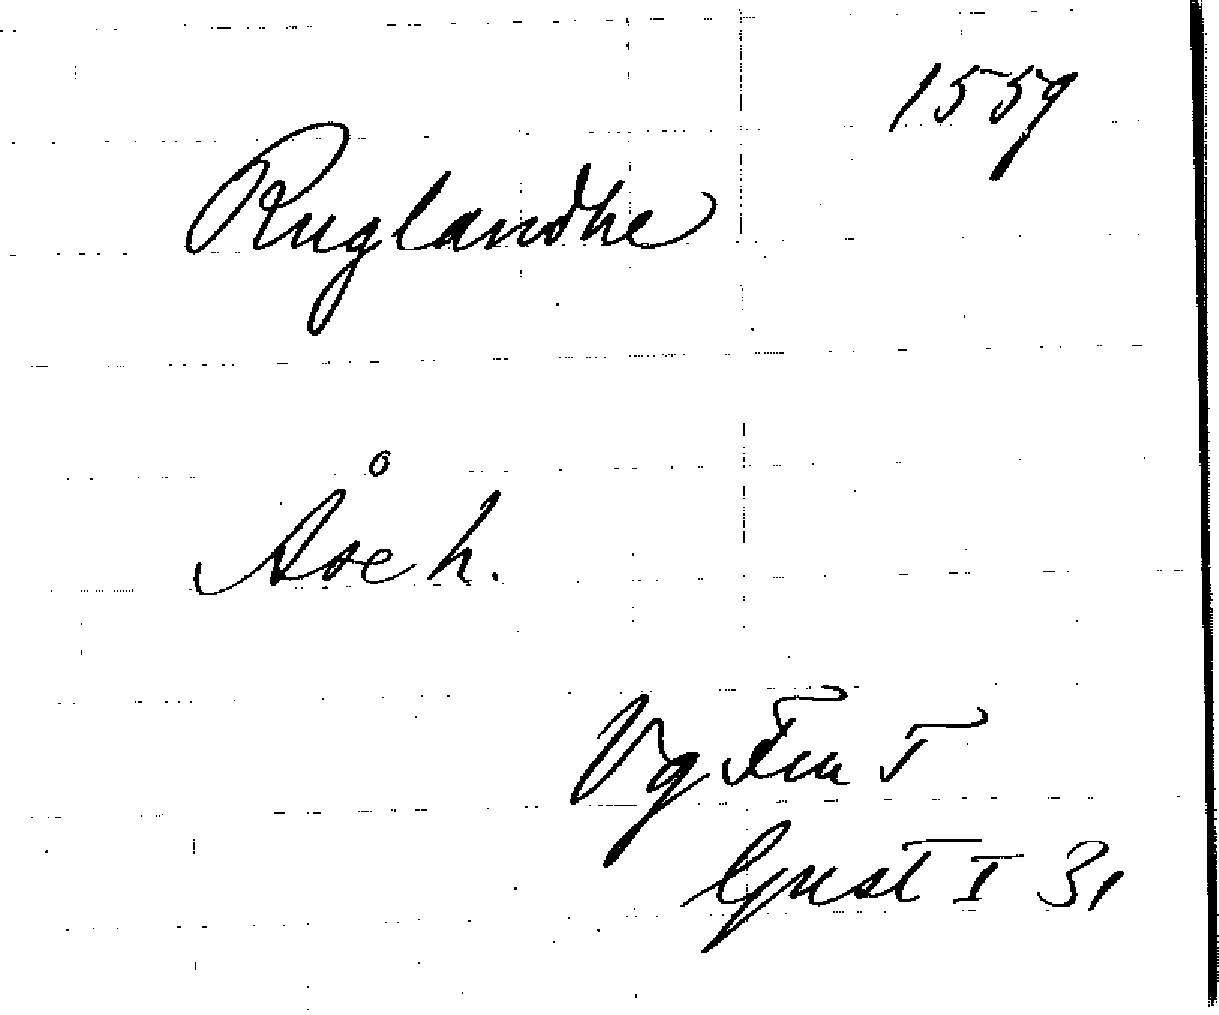 1559
Ruglandhe
Åse h.
Vg Fru T
Gust I 31